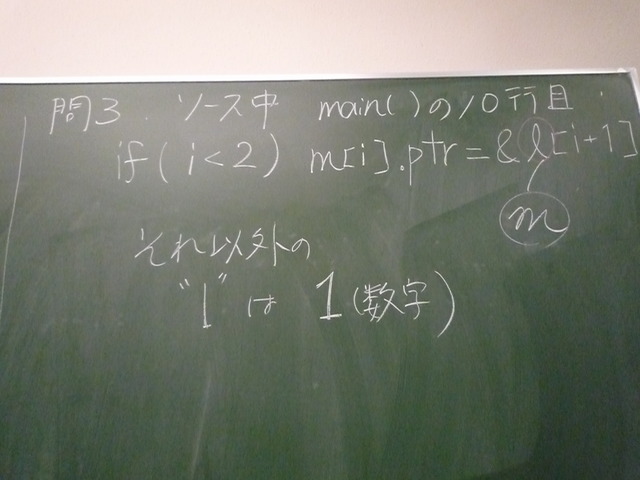 問3. ソース中 main()の10行目.
if(i<2) m[i].ptr=&l[i+1]
m
それ以外の
"l"は 1(数字)